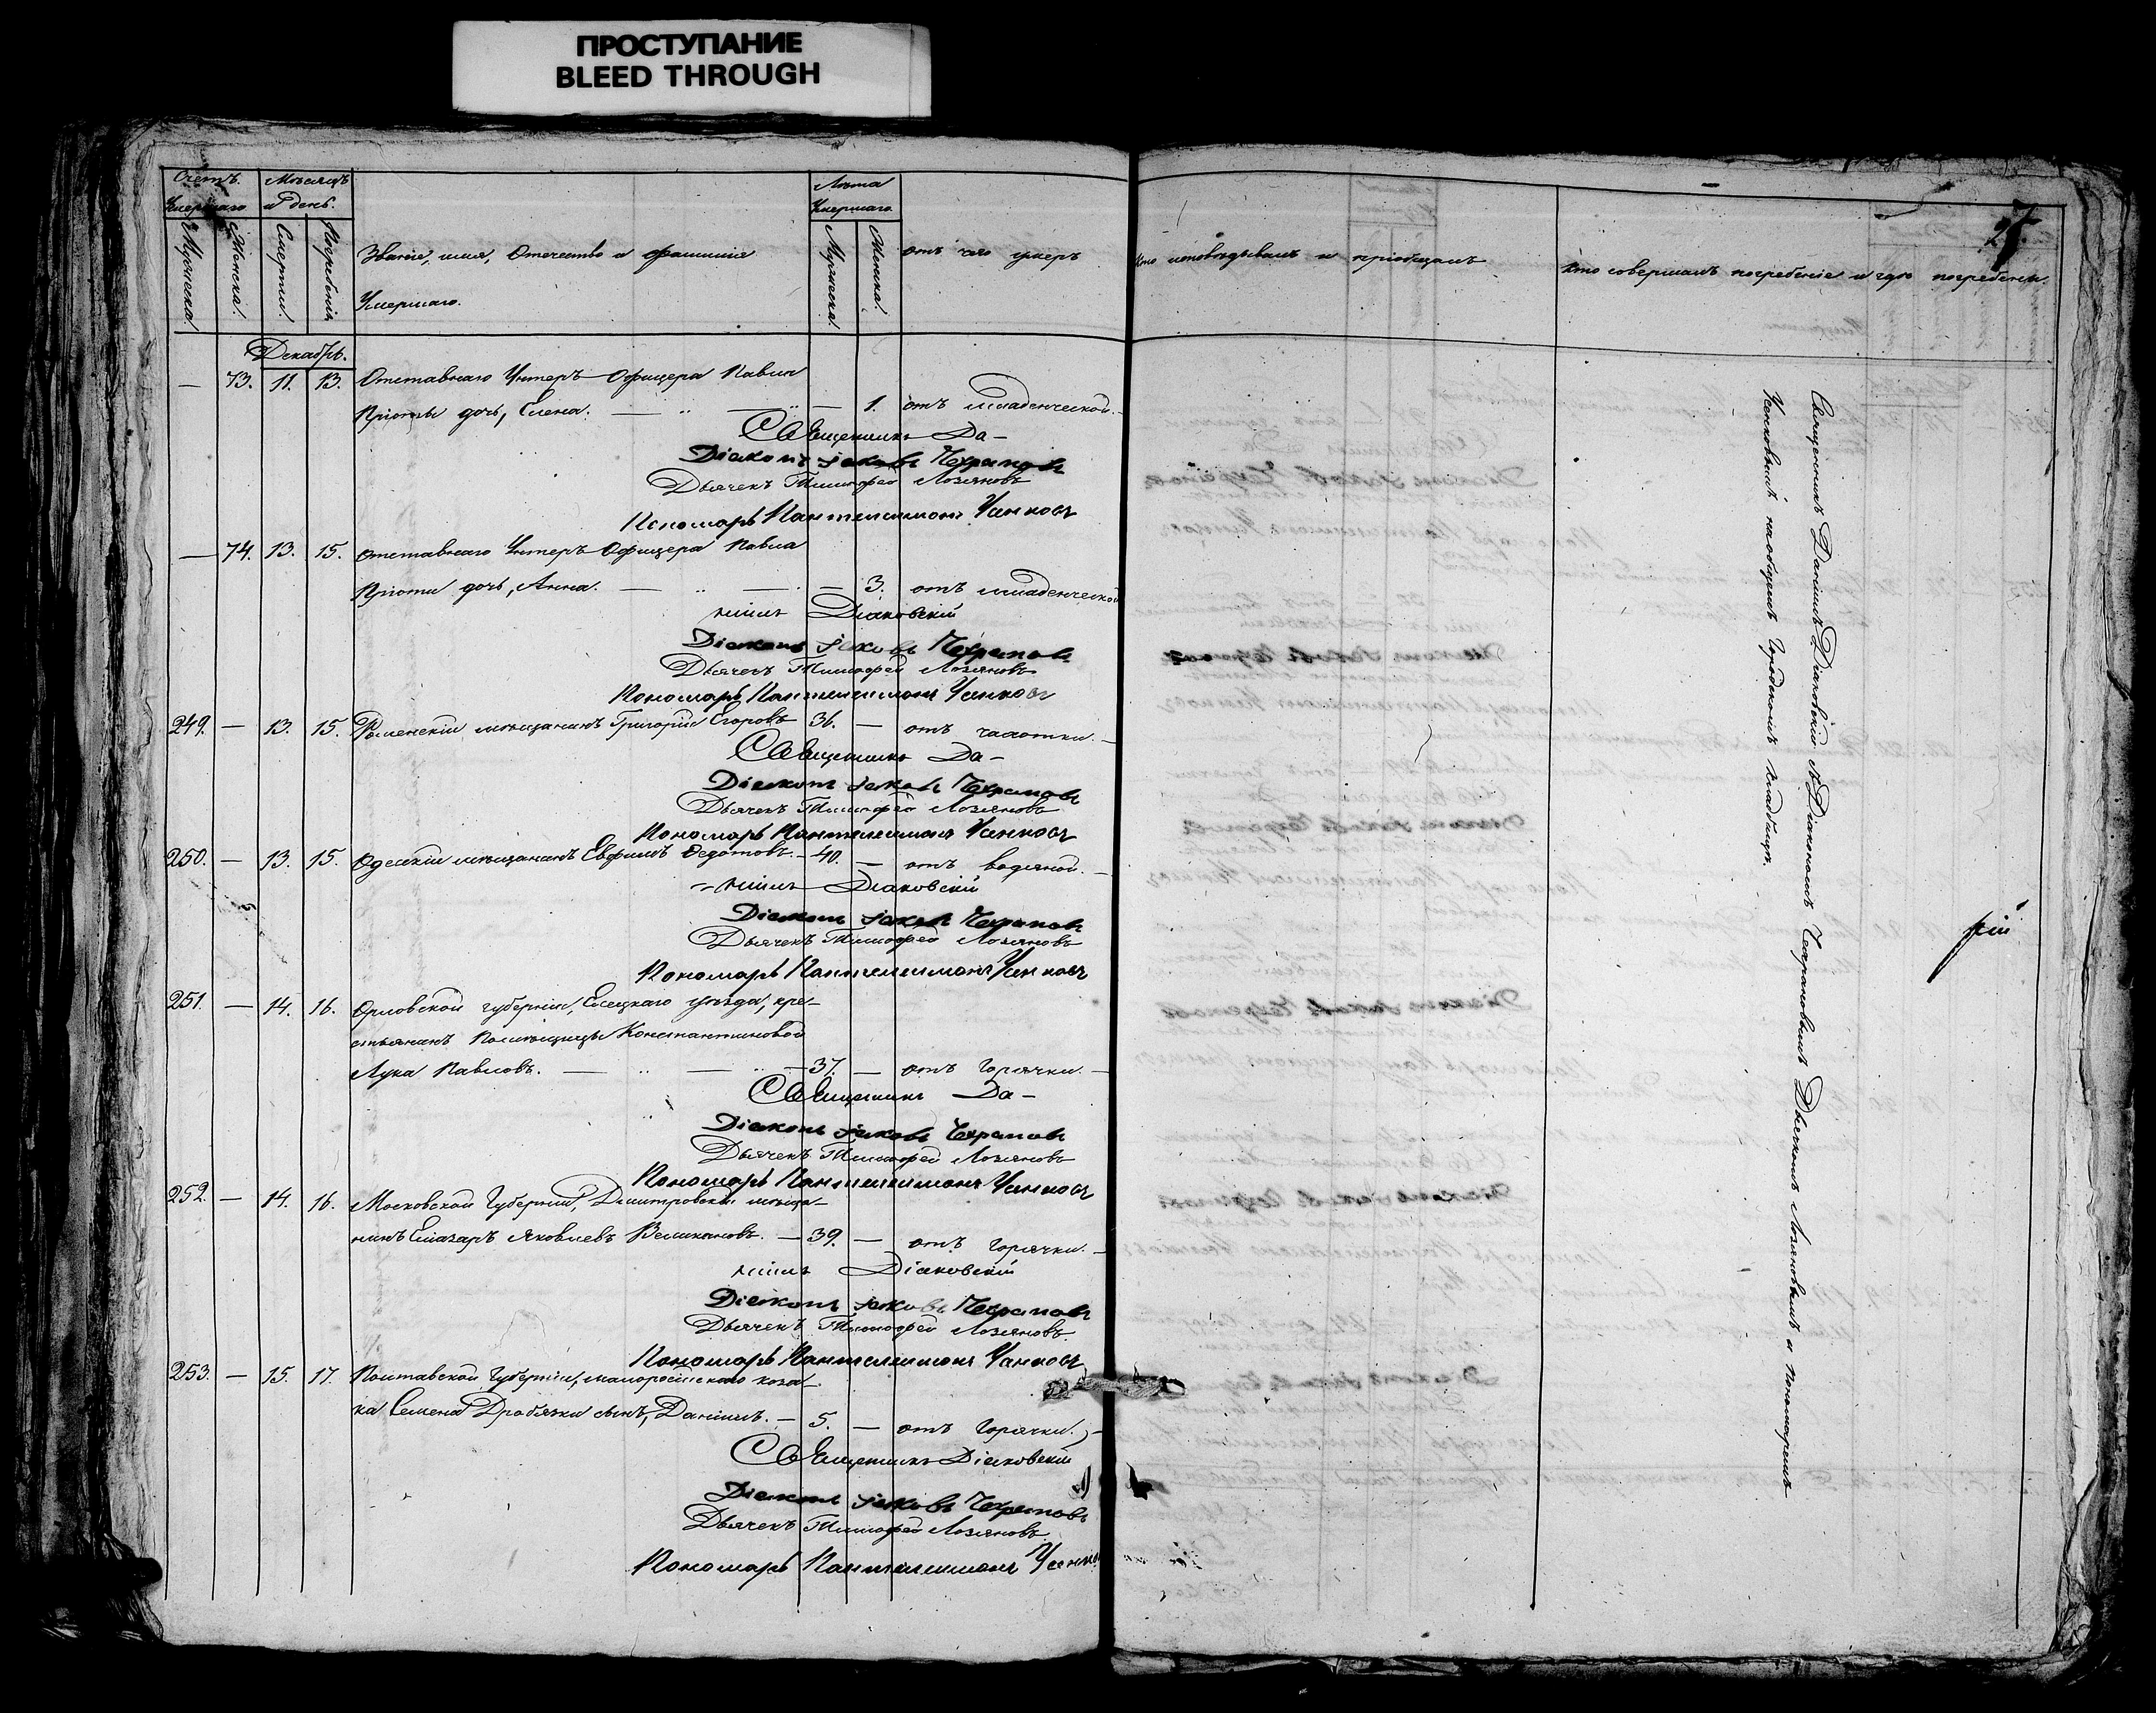 ПРОСТУПАНИЕ
BLEED THROUGH
Счетъ
Умершаго
Мѣсяцъ
и день.
Лѣта
Умершаго
Мужеска.
Женска.
Смерти.
Погребенія
Званіе, имя, Отечество и фамилія
Умершаго.
Мужеска.
Женска.
отъ чего умеръ
Кто исповѣдывалъ и пріобщалъ
Кто совершалъ погребеніе и гдѣ погребены.
Декабрь.
— 73. 11. 13. Отставнаго Унтеръ-Офицера Павла
дочь, Елена. — 1. отъ младенческой.
Священникъ Да-
Діаконъ Іаковъ
Дьячекъ Тимофей Лозяновъ
Пономарь Пантелеимонъ
— 74. 13. 15. Отставнаго Унтеръ-Офицера Павла
дочь, Анна. — 3. отъ младенческой
ніилъ Діаковскій
Діаконъ Іаковъ
Дьячекъ Тимофей Лозяновъ
Пономарь Пантелеимонъ
249. — 13. 15. мѣщанинъ Григорій Егоровъ 36. — отъ чахотки. —
Священникъ Да-
Діаконъ Іаковъ
Дьячекъ Тимофей Лозяновъ
Пономарь Пантелеимонъ
250. — 13. 15. Одескій мѣщанинъ Евфимъ Федотовъ. — 40. — отъ водяной. —
ніилъ Діаковскій
Діаконъ Іаковъ
Дьячекъ Тимофей Лозяновъ
Пономарь Пантелеимонъ
251. — 14. 16. Орловской губерніи, Елецкаго уѣзда, кре-
стьянинъ Помѣщицы Константиновой
Лука Павловъ. — 37. — отъ Горячки. —
Священникъ Да-
Діаконъ Іаковъ
Дьячекъ Тимофей Лозяновъ
Пономарь Пантелеимонъ
252. — 14. 16. Московской Губерніи, Дмитровскій мѣща-
нинъ Елазаръ Яковлевъ Великановъ. — 39. — отъ горячки. —
ніилъ Діаковскій
Діаконъ Іаковъ
Дьячекъ Тимофей Лозяновъ.
Пономарь Пантелеимонъ
253. — 15. 17. Полтавской Губерніи, малороссійскаго коза-
ка Семена Дробязки сынъ, Даніилъ. — 5. — отъ Горячки. —
Священникъ Діаковскій
Діаконъ Іаковъ
Дьячекъ Тимофей Лозяновъ.
Пономарь Пантелеимонъ
Священникъ Даніилъ Діаковскій съ Діакономъ Дьячкомъ Лозяновымъ и пономаремъ
на общемъ Городскомъ кладбищѣ.
кій